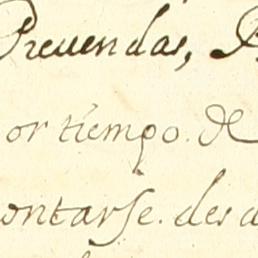 Prevendas, P
or tiempo. de
ontarse. desd